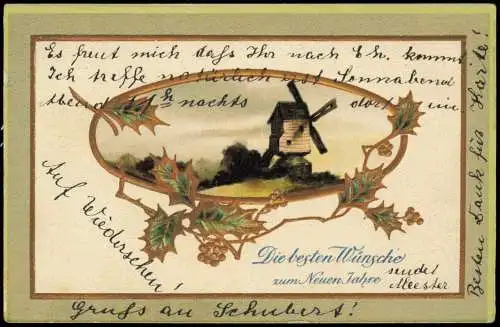 Es freut mich daß Ihr nach Eh. kommt
Ich treffe natürlich erst Sonnabend
Abend nachts dort ein
Auf Wiedersehen!
Die besten Wünsche
zum Neuen Jahre
sendet
Meester
Gruß an Schubert!
Besten Dank für Karte!